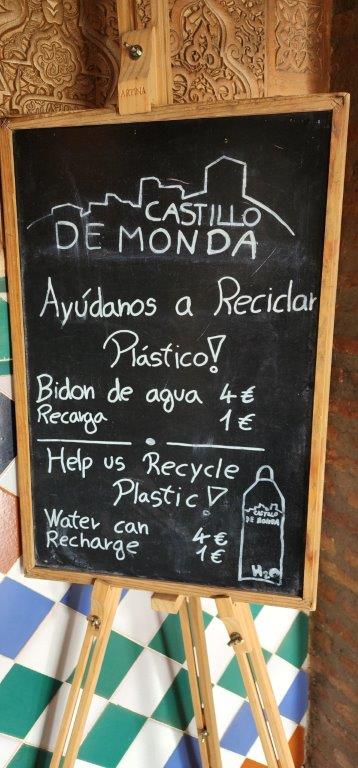 ARTINA
CASTILLO
DE MONDA
Ayúdanos a Reciclar
Plástico!
Bidon de agua 4€
Recarga 1€
Help us Recycle
Plastic!
Water can 4€
Recharge 1€
CASTILLO
DE MONDA
H2O